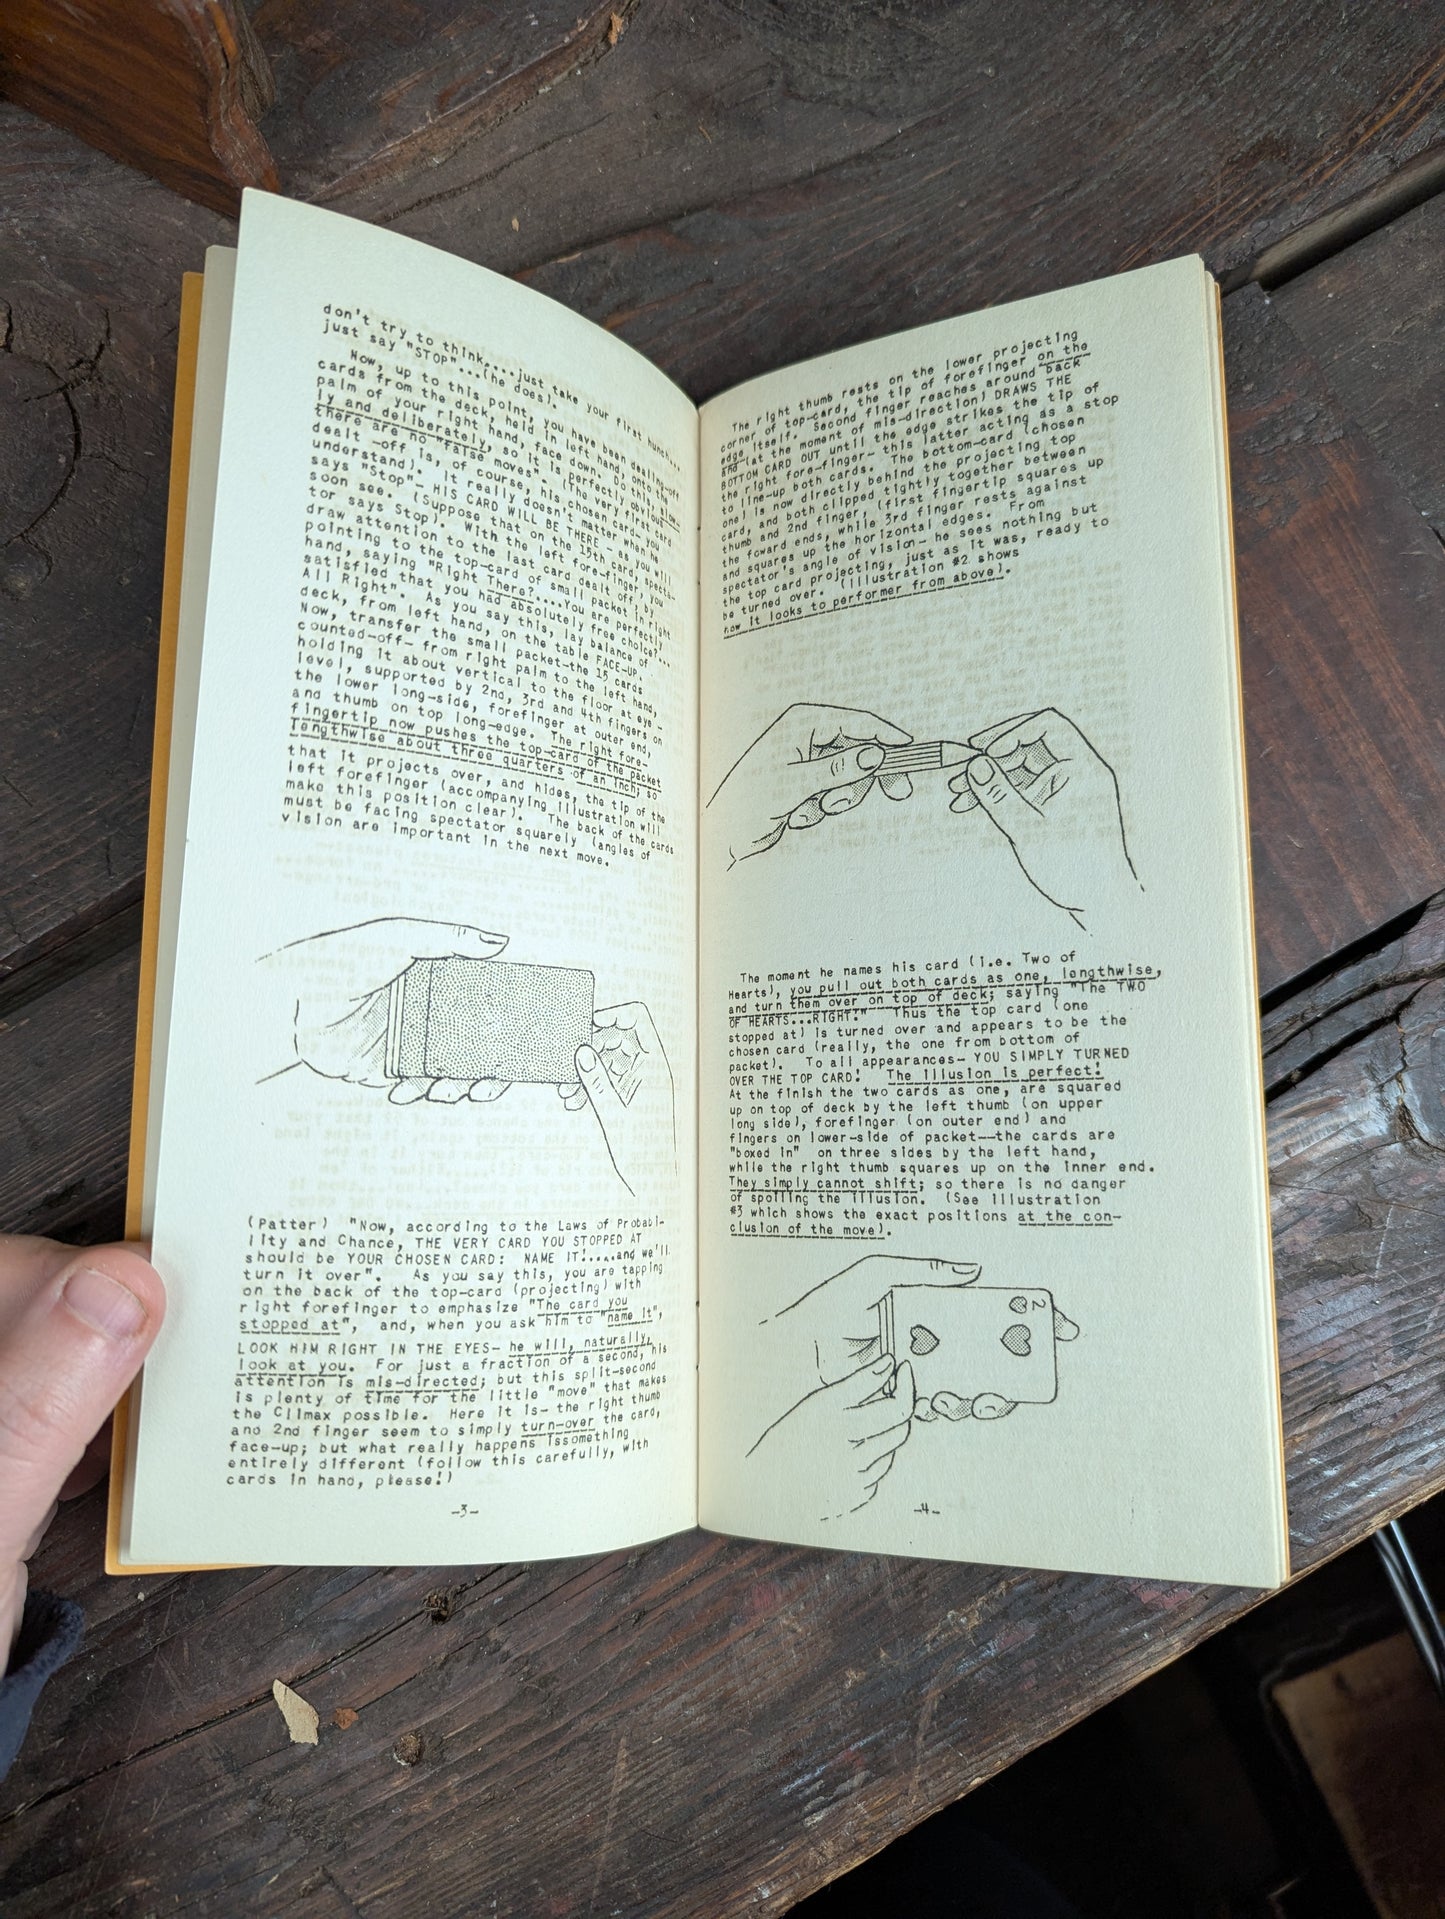 don't try to think....just take your first hunch...
just say "STOP"...(he does).
Now, up to this point, you have been dealing-off
cards from the deck, held in left hand, onto the
palm of your right hand, face down. Do this slow-
ly and deliberately, so it is perfectly obvious
there are no "false moves". (The very first card
dealt -off is, of course, his chosen card- you
understand). It really doesn't matter when he
says "Stop"- HIS CARD WILL BE THERE - as you will
soon see. (Suppose that on the 15th card, specta-
tor says Stop). With the left fore-finger, you
draw attention to the last card dealt off, by
pointing to the top-card of small packet in right
hand, saying "Right There?....You are perfectly
satisfied that you had absolutely free choice?...
All Right". As you say this, lay balance of
deck, from left hand, on the table FACE-UP.
Now, transfer the small packet-the 15 cards
counted-off- from right palm to the left hand,
holding it about vertical to the floor at eye-
level, supported by 2nd, 3rd and 4th fingers on
the lower long-side, forefinger at outer end,
and thumb on top long-edge. The right fore-
fingertip now pushes the top-card of the packet
lengthwise about three quarters of an inch; so
that it projects over, and hides, the tip of the
left forefinger (accompanying illustration will
make this position clear). The back of the cards
must be facing spectator squarely (angles of
vision are important in the next move.
(Patter) "Now, according to the Laws of Probabi-
lity and Chance, THE VERY CARD YOU STOPPED AT
should be YOUR CHOSEN CARD: NAME IT!....and we'll
turn it over". As you say this, you are tapping
on the back of the top-card (projecting) with
right forefinger to emphasize "The card you
stopped at", and, when you ask him to "name it",
LOOK HIM RIGHT IN THE EYES- he will, naturally,
look at you. For just a fraction of a second, his
attention is mis-directed; but this split-second
is plenty of time for the little "move" that makes
the Climax possible. Here it is- the right thumb
and 2nd finger seem to simply turn-over the card,
face-up; but what really happens issomething
entirely different (follow this carefully, with
cards in hand, please!)
-3-
The right thumb rests on the lower projecting
corner of top-card, the tip of forefinger on the
edge itself. Second finger reaches around back
and (at the moment of mis-direction) DRAWS THE
BOTTOM CARD OUT until the edge strikes the tip of
the right fore-finger- this latter acting as a stop
to line-up both cards. The bottom-card (chosen
one) is now directly behind the projecting top
card, and both clipped tightly together between
thumb and 2nd finger, (first fingertip squares up
the foward ends, while 3rd finger rests against
and squares up the horizontal edges. From
spectator's angle of vision- he sees nothing but
the top card projecting, just as it was, ready to
be turned over. (Illustration #2 shows
how it looks to performer from above).
The moment he names his card (i.e. Two of
Hearts), you pull out both cards as one, lengthwise,
and turn them over on top of deck; saying "The TWO
OF HEARTS...RIGHT?" Thus the top card (one
stopped at) is turned over and appears to be the
chosen card (really, the one from bottom of
packet). To all appearances- YOU SIMPLY TURNED
OVER THE TOP CARD! The illusion is perfect!
At the finish the two cards as one, are squared
up on top of deck by the left thumb (on upper
long side), forefinger (on outer end) and
fingers on lower-side of packet--the cards are
"boxed in" on three sides by the left hand,
while the right thumb squares up on the inner end.
They simply cannot shift; so there is no danger
of spoiling the illusion. (See illustration
#3 which shows the exact positions at the con-
clusion of the move).
2
-4-